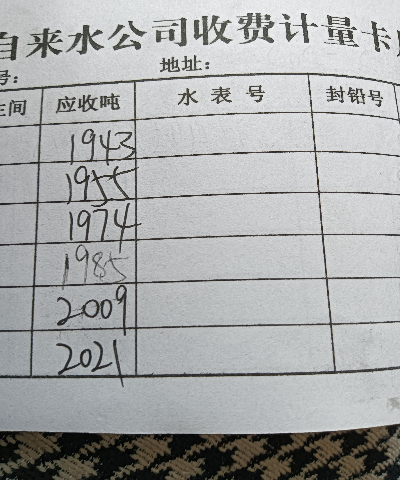 自来水公司收费计量卡
号： 地址：
间 应收吨 水表号 封铅号
1943
1955
1974
1985
2009
2021